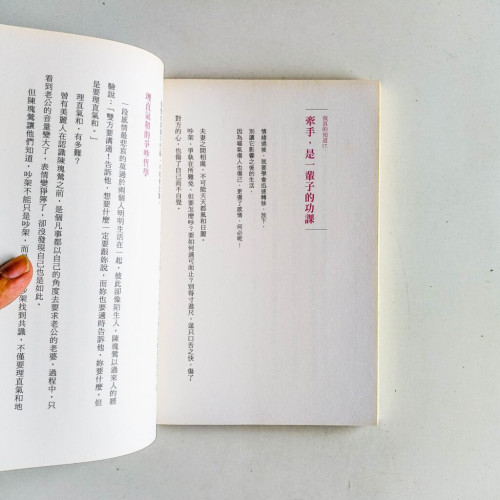 牽手，是一輩子的功課
情緒過後，就要學會迅速轉移、放下，
別讓它影響之後的生活，
因為嘔氣傷人也傷己，更傷了感情，何必呢！
夫妻之間相處，不可能天天都風和日麗。
吵架、爭執在所難免，但要怎麼吵？要如何適可而止？別得寸進尺，逞口舌之快，傷了
對方的心，也傷了自己而不自覺。
理直氣和的爭吵哲學
一段感情最悲哀的莫過於兩個人明明生活在一起，彼此卻像陌生人，陳瑰鶯以過來人的經
驗說：「雙方要溝通！告訴他，想要什麼一定要跟妳說，而妳也要適時告訴他，妳要什麼，但
是要理直氣和。」
理直氣和，有多難？
曾有美麗人在認識陳瑰鶯之前，是個凡事都以自己的角度去要求老公的老婆，過程中，只
看到老公的音量變大了，表情變猙獰了，卻沒發現自己也是如此。
但陳瑰鶯讓他們知道，吵架不能只是吵架，而 吵架找到共識，不僅要理直氣和地